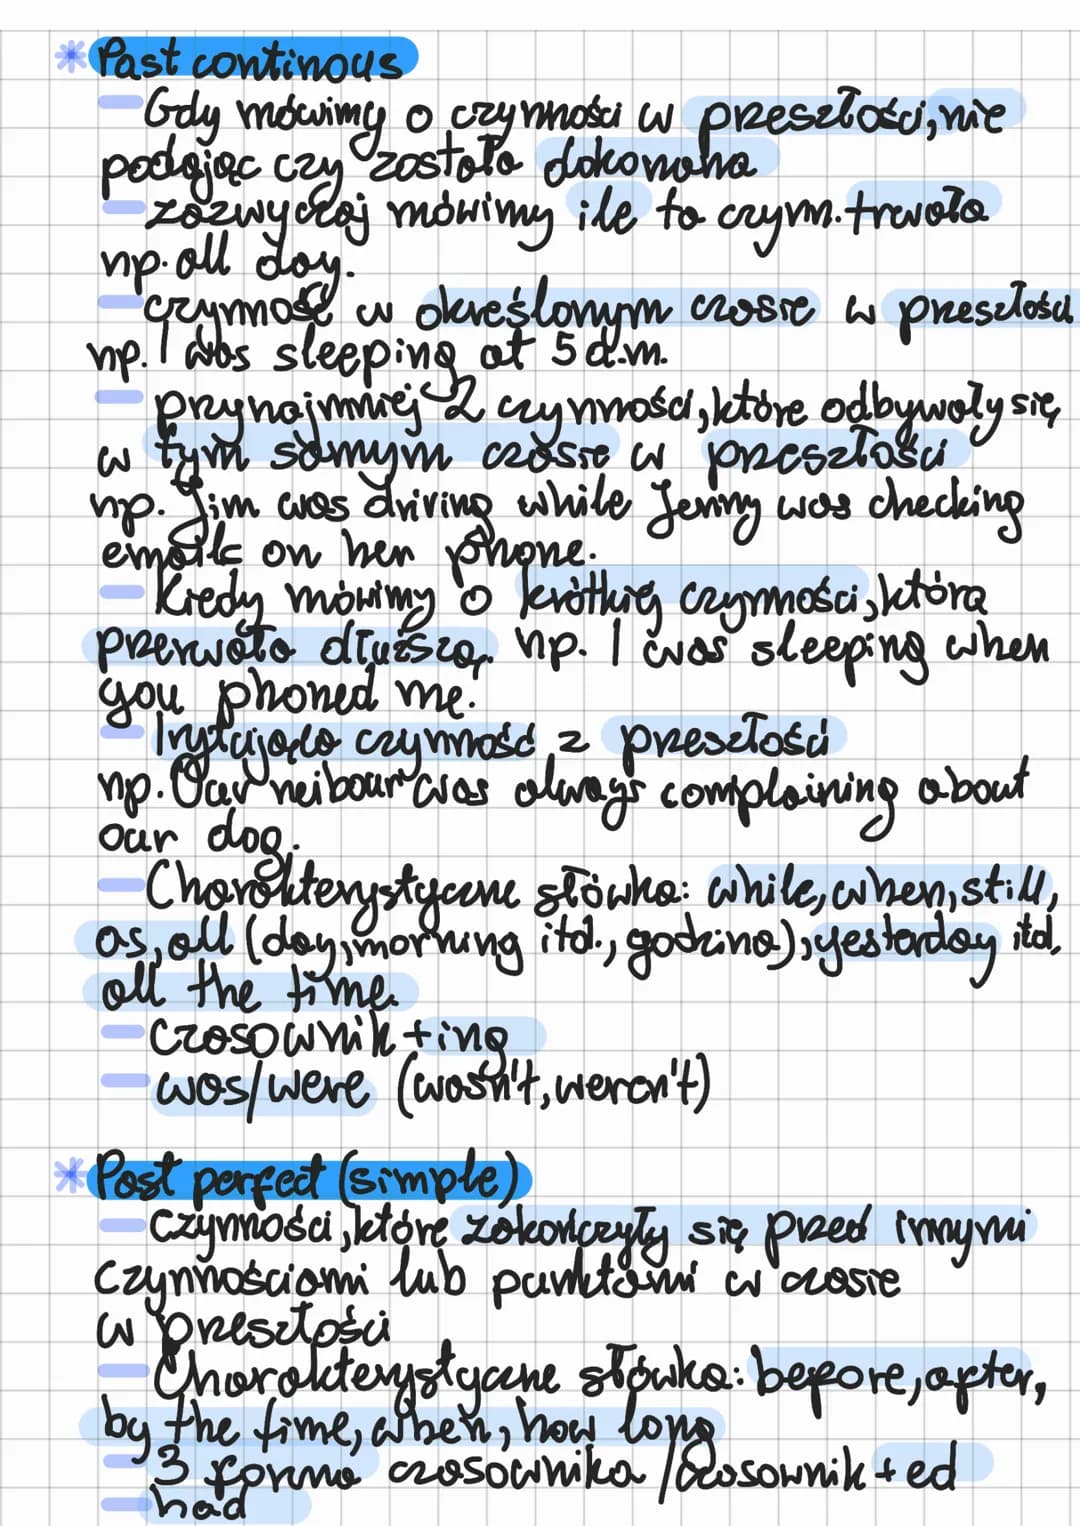 Past continous
Gdy mówimy o czynności w przeszłości, nie
podając czy została dokonana
zazwyczaj mówimy ile to czynn. trwała
np. all day.
czynność w określonym czasie w przeszłości
np. I was sleeping at 5 a.m.
przynajmniej 2 czynności, które odbywały się
w tym samym czasie w przeszłości
np. Jim was driving while Jenny was checking
emails on her phone.
Kiedy mówimy o krótkiej czynności, która
przerwała dłuższą. np. I was sleeping when
you phoned me.
Irytująca czynność z przeszłości
np. Our neibour was always complaining about
our dog.
Charakterystyczne słówka: while, when, still,
as, all (day, morning itd., godzina), yesterday itd,
all the time.
czasownik + ing
was/were (wasn't, weren't)
Past perfect (simple)
Czynności, które zakończyły się przed innymi
czynnościami lub punktami w czasie
w przeszłości
Charakterystyczne słówka: before, after,
by the time, when, how long
3 forma czasownika / czasownik + ed
had